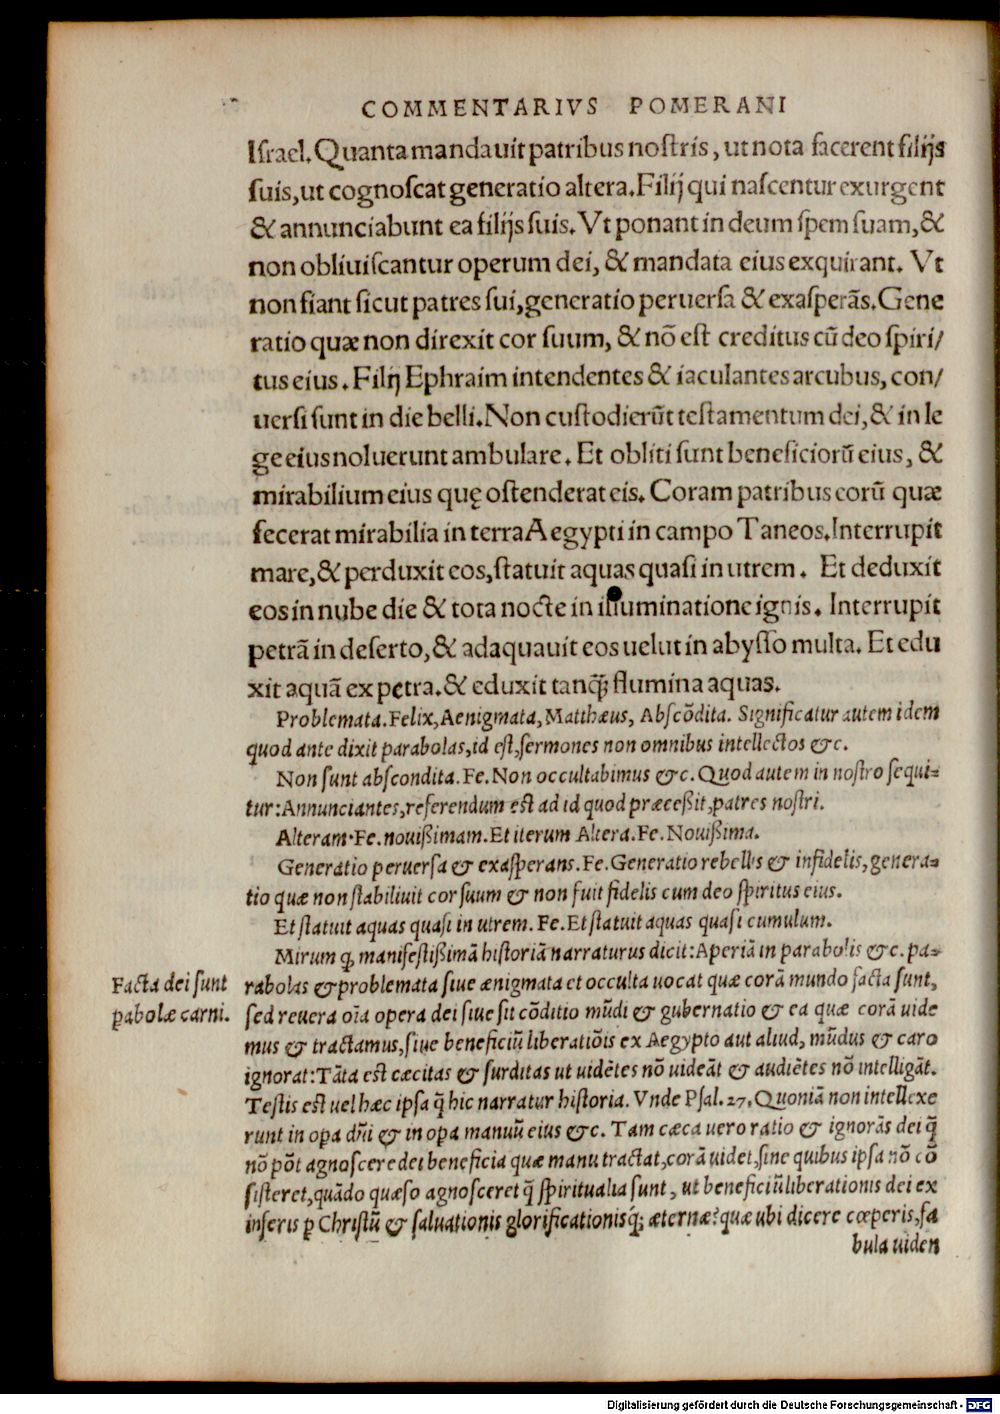 COMMENTARIVS POMERANI
Iſrael. Quanta mandauit patribus noſtris, ut nota facerent filijs
ſuis, ut cognoſcat generatio altera. Filij qui naſcentur exurgent
& annunciabunt ea filijs ſuis. Vt ponant in deum ſpem ſuam, &
non obliuiſcantur operum dei, & mandata eius exquirant. Vt
non fiant ſicut patres ſui, generatio peruerſa & exaſperãs. Gene
ratio quæ non direxit cor ſuum, & nõ eſt creditus cũ deo ſpiri/
tus eius. Filij Ephraim intendentes & iaculantes arcubus, con/
uerſi ſunt in die belli. Non cuſtodierũt teſtamentum dei, & in le
ge eius noluerunt ambulare. Et obliti ſunt beneficiorũ eius, &
mirabilium eius quę oſtenderat eis. Coram patribus eorũ quæ
fecerat mirabilia in terra Aegypti in campo Taneos. Interrupit
mare, & perduxit eos, ſtatuit aquas quaſi in utrem. Et deduxit
eos in nube die & tota nocte in illuminatione ignis. Interrupit
petrã in deſerto, & adaquauit eos uelut in abyſſo multa. Et edu
xit aquã ex petra. & eduxit tanq̃ꝫ flumina aquas.
Problemata. Felix, Aenigmata, Matthæus, Abſcõdita. Significatur autem idem
quod ante dixit parabolas, id eſt, ſermones non omnibus intellectos &c.
Non ſunt abſcondita. Fe. Non occultabimus &c. Quod autem in noſtro ſequi-
tur: Annunciantes, referendum eſt ad id quod præceßit, patres noſtri.
Alteram. Fe. nouißimam. Et iterum Altera. Fe. Nouißima.
Generatio peruerſa & exaſperans. Fe. Generatio rebellis & infidelis, genera-
tio quæ non ſtabiliuit cor ſuum & non fuit fidelis cum deo ſpiritus eius.
Et ſtatuit aquas quaſi in utrem. Fe. Et ſtatuit aquas quaſi cumulum.
Mirum ꝙ manifeſtißimã hiſtoriã narraturus dicit: Aperiã in parabolis &c. pa-
Facta dei ſunt
ꝑabolæ carni.
rabolas & problemata ſiue ænigmata et occulta uocat quæ corã mundo facta ſunt,
ſed reuera oĩa opera dei ſiue ſit cõditio mũdi & gubernatio & ea quæ corã uide
mus & tractamus, ſiue beneficiũ liberatiõis ex Aegypto aut aliud, mũdus & caro
ignorat: Tãta eſt cæcitas & ſurditas ut uidẽtes nõ uideãt & audiẽtes nõ intelligãt.
Teſtis eſt uel hæc ipſa q̃ hic narratur hiſtoria. Vnde Pſal. 27. Quoniã non intellexe
runt in opa dñi & in opa manuũ eius &c. Tam cæca uero ratio & ignorãs dei q̃
nõ põt agnoſcere dei beneficia quæ manu tractat, corã uidet, ſine quibus ipſa nõ cõ
ſiſteret, quãdo quæſo agnoſceret q̃ ſpiritualia ſunt, ut beneficiũ liberationis dei ex
inferis ꝑ Chriſtũ & ſaluationis glorificationisq́; æternæ? quæ ubi dicere cœperis, fa
bula uiden
Digitalisierung gefördert durch die Deutsche Forschungsgemeinschaft - DFG